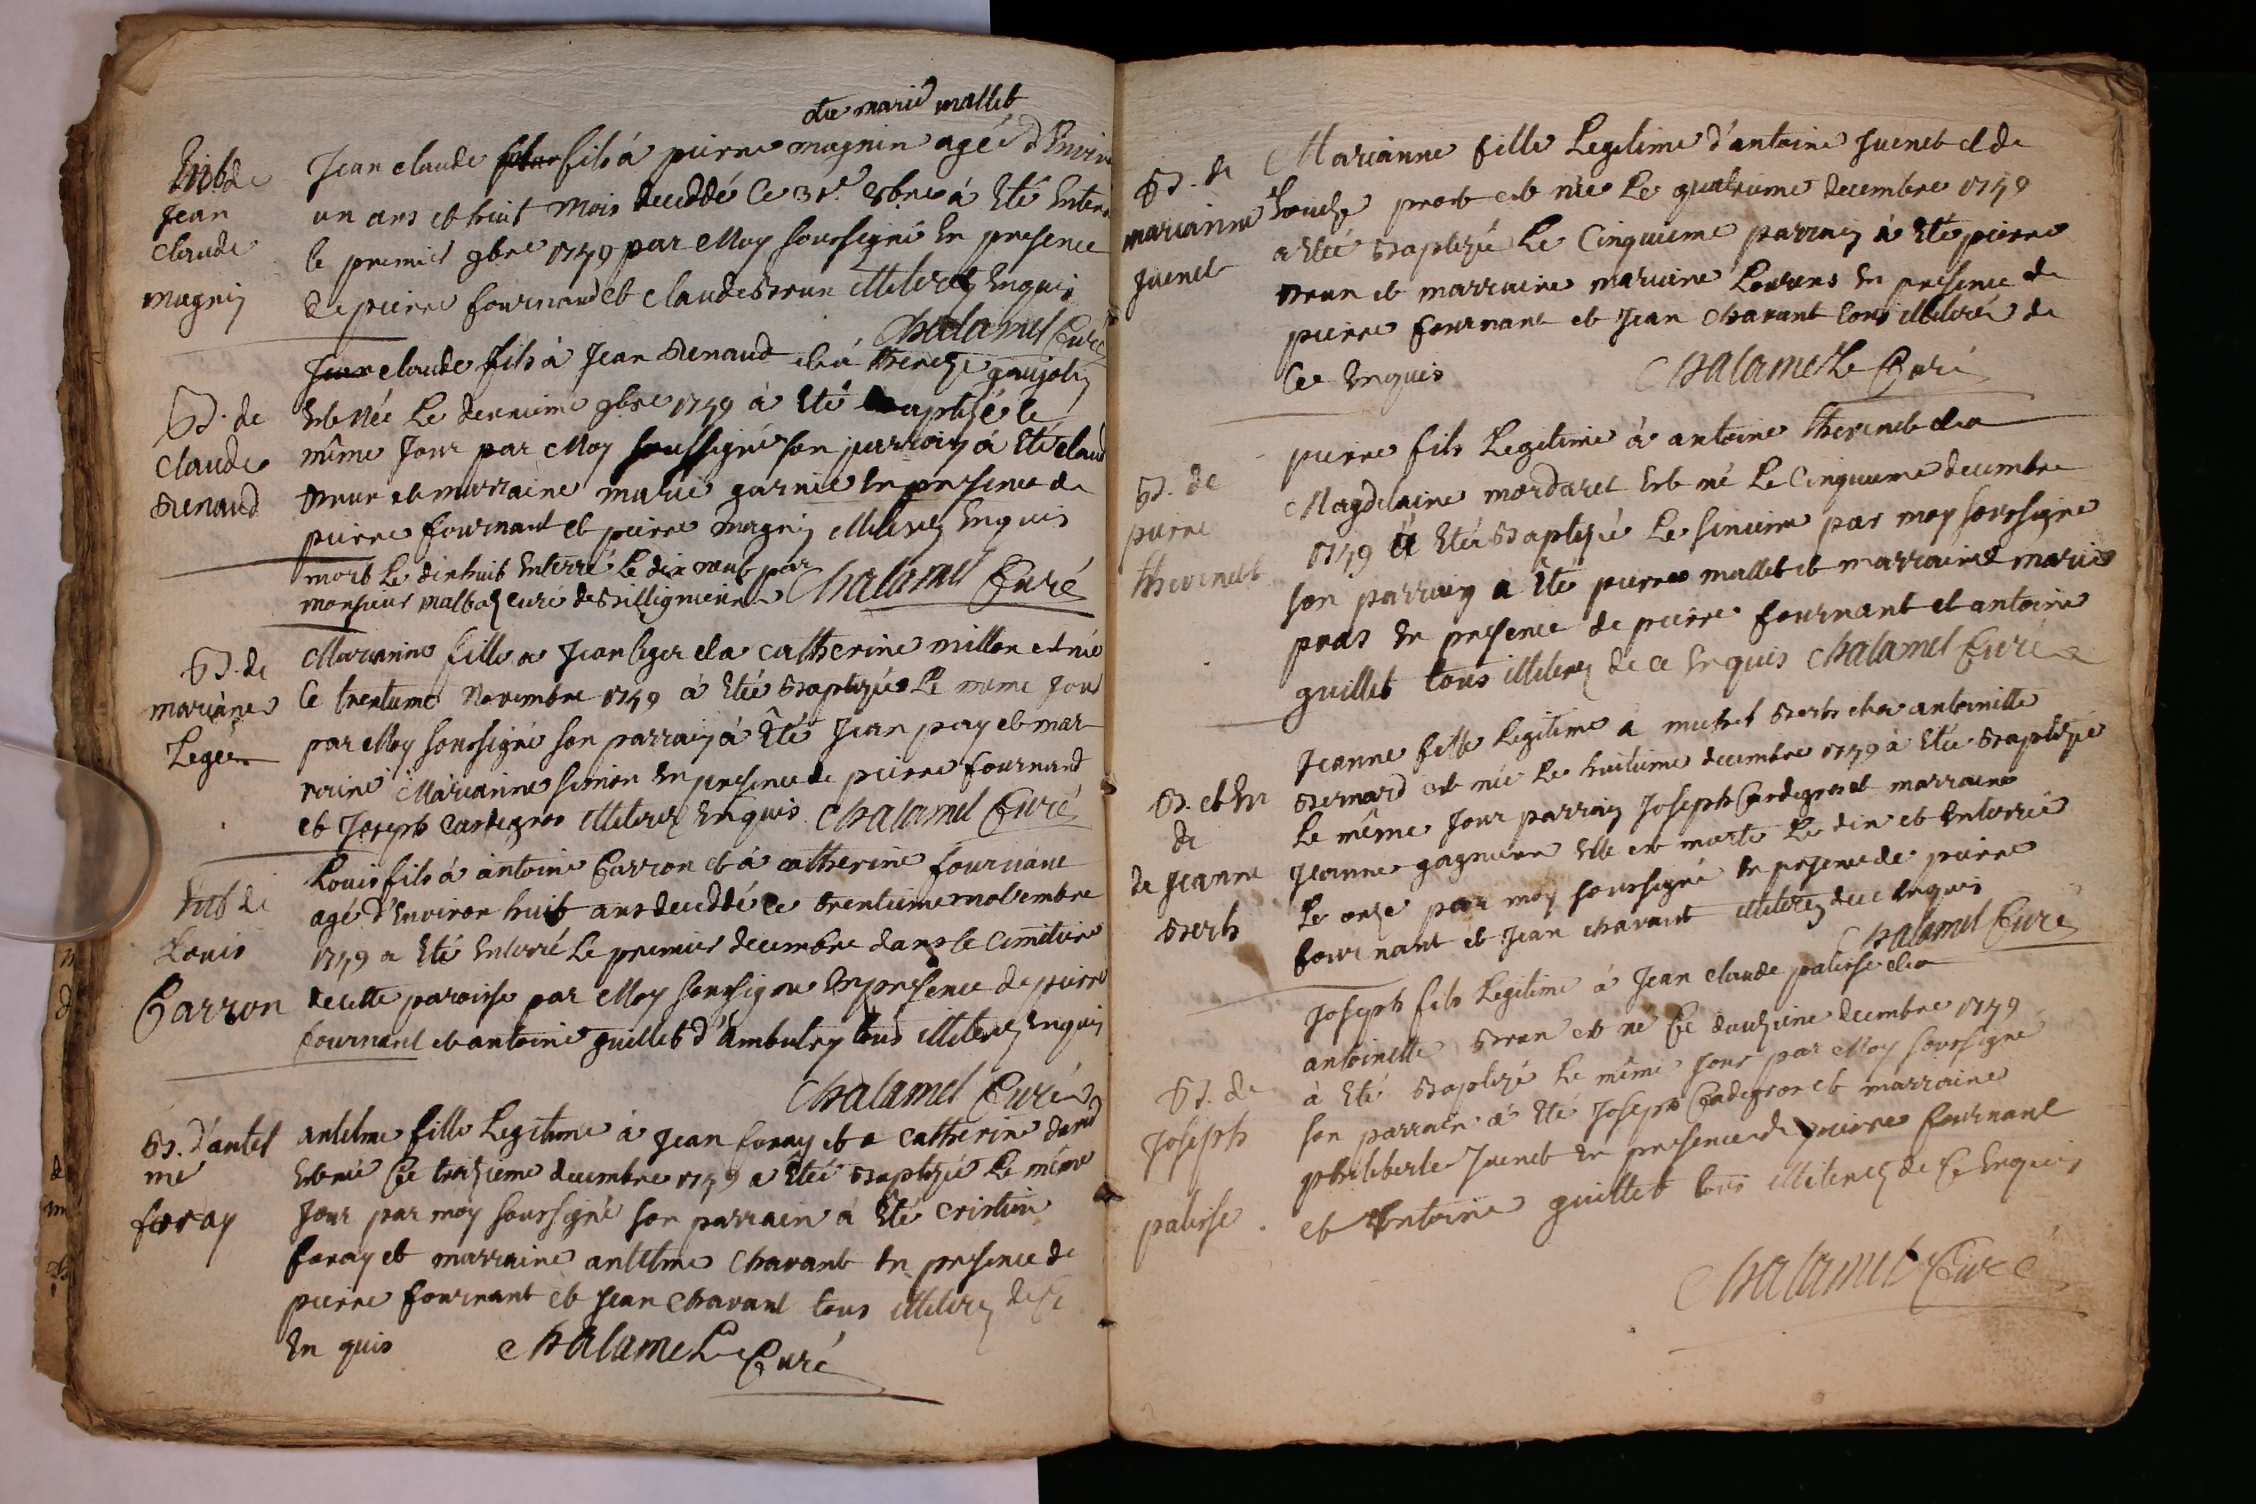 de marie mallet
Ent de
Jean
Claude
magnin
Jean claude fils à pierre magnin agé d'Enviro
un ans et huit mois deceddé ce 31e 8bre à Eté Enterr
le premier 9bre 1759 par Moy soussigné En presence
de pierre fournand et claude Brun illiterez Enquis
Chalamel Curé
B. de
Claude
Renaud
Jean claude fils à Jean Renaud et à thereze goujolin
est Née Le 9bre 1759 à Eté Baptizé le
même Jour par Moy soussigné son parrain à Eté claud
Brun et marraine marie garnie En presence de
pierre fournant et pierre magnin illiterez Enquis
mort Le dixhuit Enterré Le dix neuf par
monsieur curé de Billignieu Chalamel Curé
B. de
mariane
Leger
Marianne fille a Jean leger et a catherine millon est née
Ce trentieme Novembre 1759 à Etée Baptizée Le meme Jour
par Moy soussigné son parrain à Êté Jean pay et mar
raine Marianne simon En presence de pierre fournand
et Joseph illiterez Enquis Chalamel Curé
Ent de
Louis
Carron
Louis fils à antoine Carron et à catherine fournant
agé d'Environ huit ans deceddé le trentieme novembre
1759 a Eté Enterré Le premier decembre dans le Cimitiere
de cette paroisse par Moy soussigné En presence de pierre
fournant et antoine guillet d'Ambutrix tous illiterez Enquis
Chalamel Curé
B. d'antel
me
foray
antelme fille Legitime à Jean foray et a catherine
Est née Ce treizieme decembre 1759 a Êtée Baptizée Le même
Jour par moy soussigné son parrain à Eté cristin
foray et marraine antelme Chavant En presence de
pierre fournant et Jean Chavant tous illiterez de ce
En quis Chalamel Curé
B. de
marianne
Juenet
Marianne fille Legitime d'antoine Juenet et de
prost est née Le quatrieme decembre 1759
a Etée Baptizée Le Cinquieme parrain à Eté pierre
Brun et marraine mariane Laurens En presence de
pierre fournant et Jean Chavant tous illiteré de
Ce Enquis Chalamel Curé
B. de
pierre
thevenet
pierre fils Legitime à antoine thevenet et a
Magdelaine mordaret Est né Le Cinquieme decembre
1759 a Eté Baptizé Le sixieme par moy soussigné
son parrain a Êté pierre mallet et marraine marie
pras En presence de pierre fournant et antoine
guillet tous illiterez de ce Enquis Chalamel Curé
B. et En
de
de Jeanne
Berth
Jeanne fille Legitime a michel Berth et a antoinette
Bernard est née Le huitieme decembre 1759 à Etée Baptizée
Le même Jour parrain Joseph et marraine
Jeanne gagneure Elle est morte Le dix et Enterrée
Le onze par moy soussigné En presence de pierre
fournant et Jean chavant illiterez de ce Enquis
Chalamel Curé
B. de
Joseph
palisse
Joseph fils Legitime à Jean claude palisse et a
antoinette Brun est né Ce douzieme decembre 1759
à Eté Baptizé Le même Jour par Moy soussigné
son parrain à Eté Joseph et marraine
philiberte Juenet En presence de pierre fournant
et Antoine guillet tous illiterez de Ce Enquis
Chalamel Curé